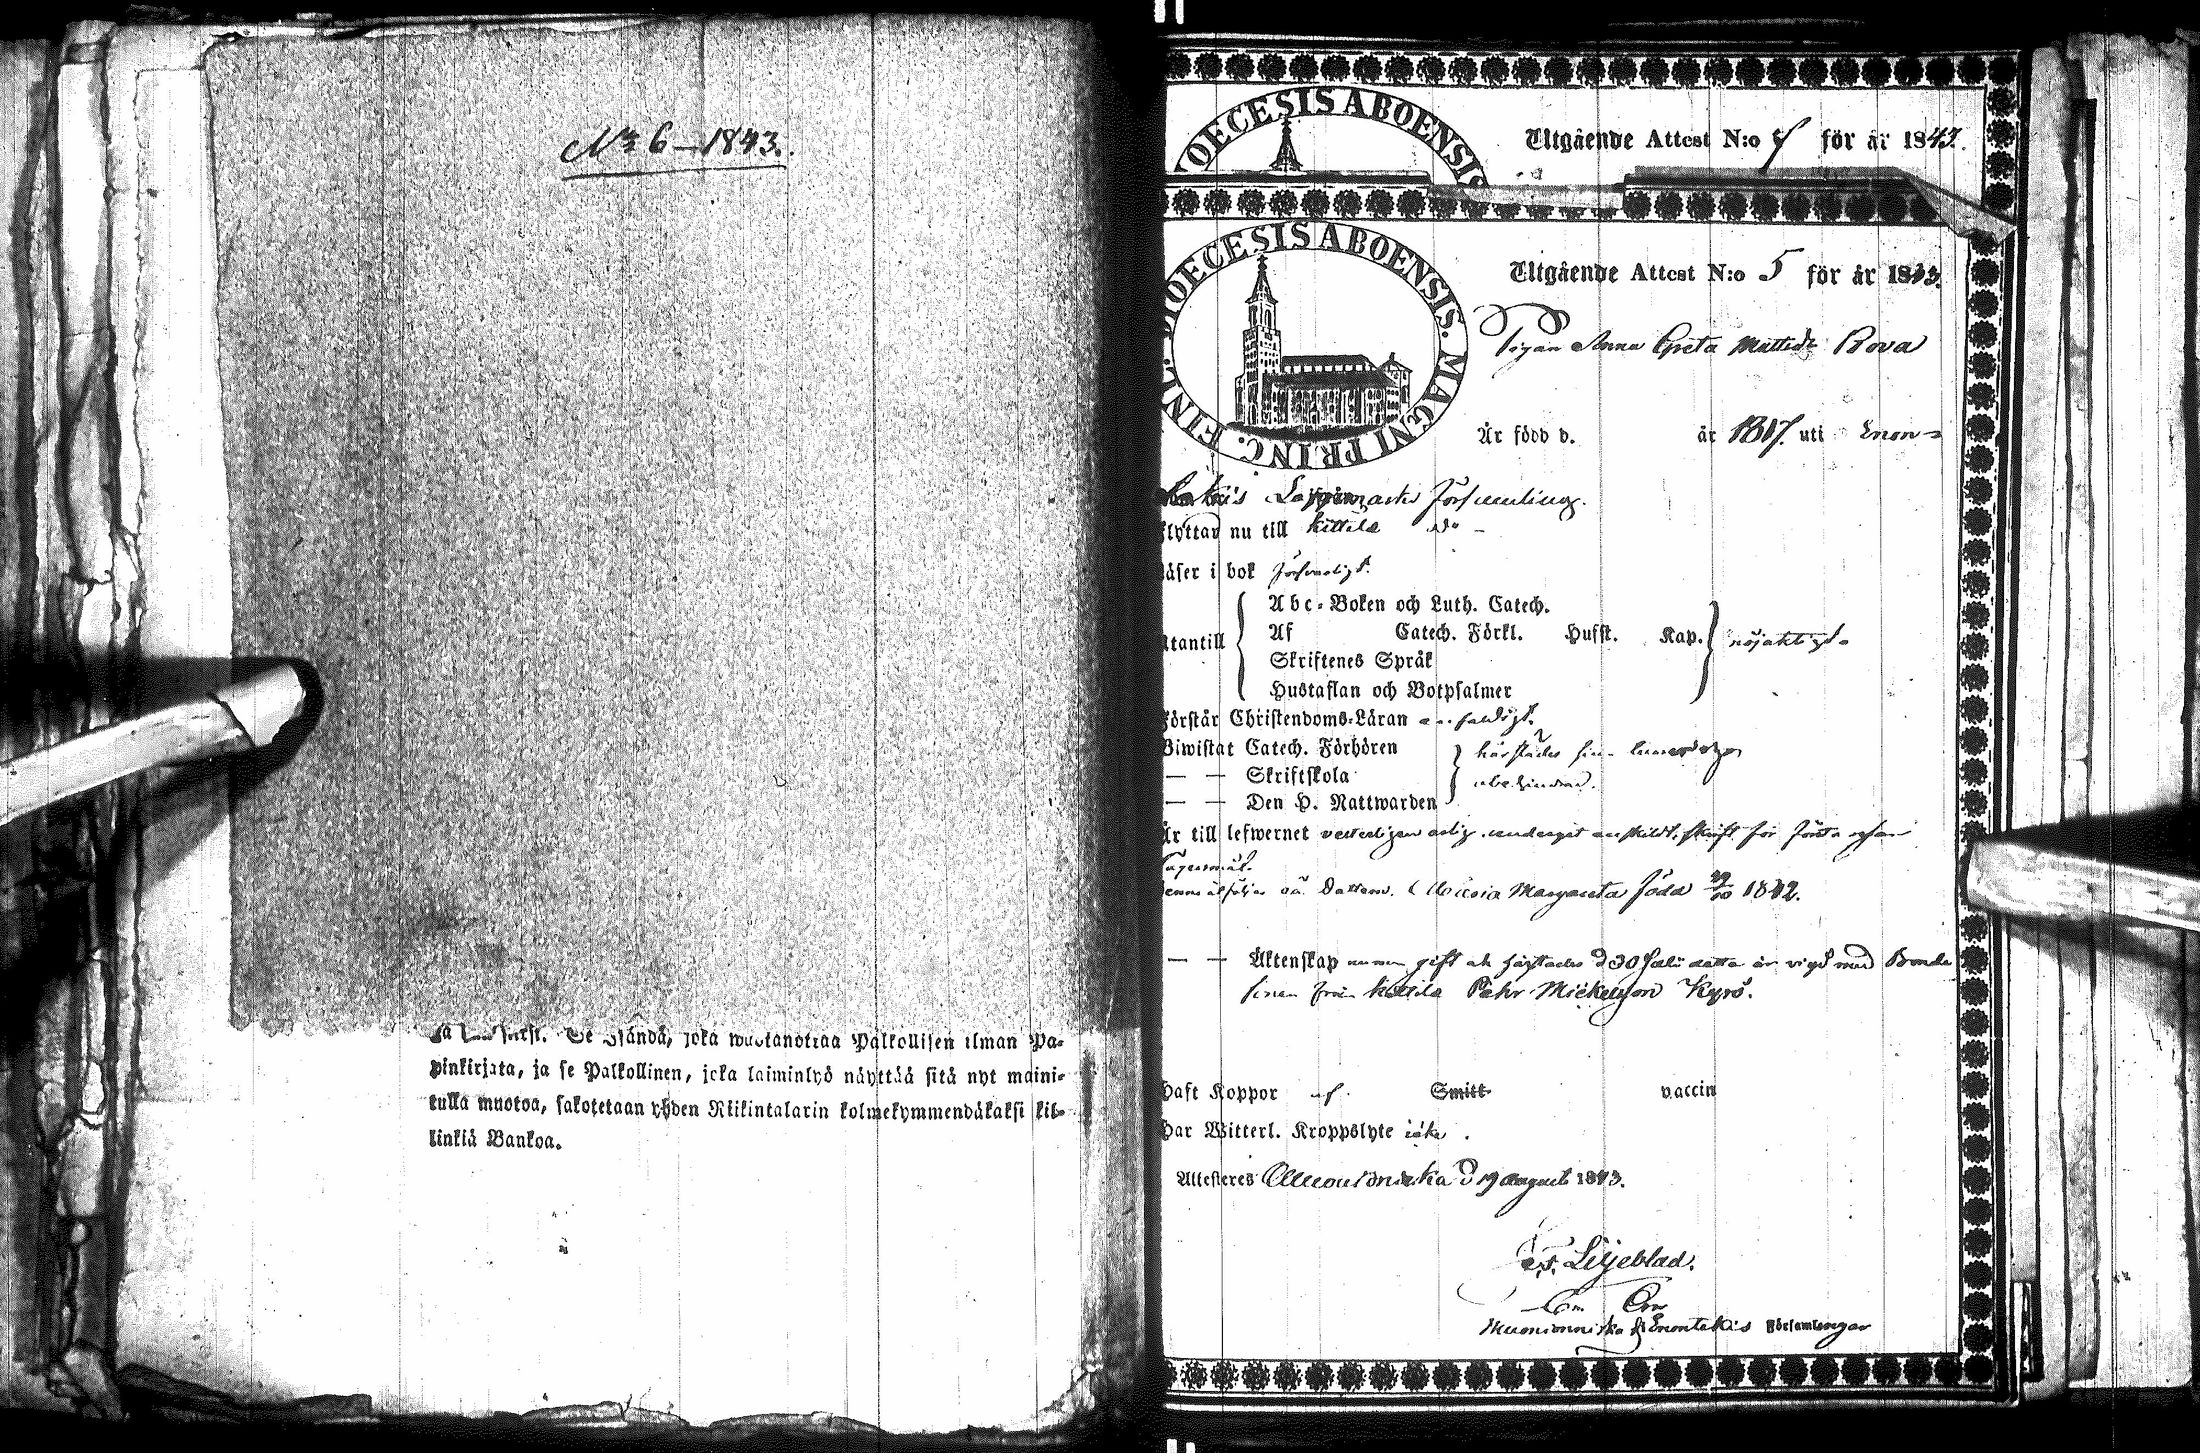 No 6 – 1843.
Ja
Se Isändä, joka wastanottaa Palkollisen ilman Pa-
pinkirjata, ja se Palkollinen, joka laiminlyö näyttää sitä nyt maini-
tulla muotoa, sakotetaan yhden Riikintalarin kolmekymmendäkaksi kil-
linkiä Bankoa.
DIOECESIS ABOENSIS
Utgående Attest N:o för år 1843.
DIOECESIS ABOENSIS. MAGNI PRINC. FINL.
Utgående Attest N:o 5 för år 1843.
Pigan Anna Greta Mattsdr Rova
Är född d. år 1817. uti Enon=
tekis Lappmarks församling.
flyttar nu till Kittilä do –
läser i bok försvarligt.
utantill
Abc-Boken och Luth. Catech.
Af Catech. Förkl. Hufst. Kap.
Skriftenes Språk
Hustaflan och Botpsalmer
nöjaktigt.
Förstår Christendoms-Läran enfaldigt.
Biwistat Catech. Förhören
— — Skriftskola
— — Den H. Nattwarden
härstädes
obehindrad.
Är till lefwernet enskildt skrift för första resan
lägersmål.
dottern Maria Margareta född 29/10 1842.
— — Äktenskap numera gift och härstädes d 30 Juli detta år vigd med Bonde
sonen från Kittilä Pehr Mickelson Kyrö.
haft Koppor af Smitt vaccin
har Witterl. Kroppslyte icke.
Attesteres Muonionniska d 19 august 1843.
Liljeblad.
Muonionniska & Enontekis Församlingar